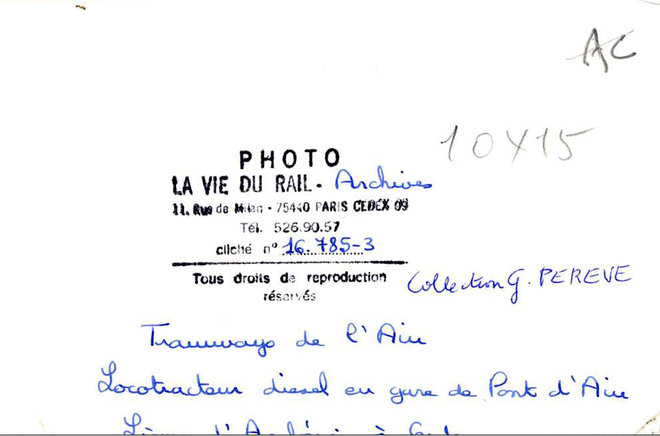 AC
10X15
PHOTO
LA VIE DU RAIL - Archives
11, Rue de Milan - 75440 PARIS CEDEX 09
Tél. 526.90.57
cliché n° 16.785-3
Tous droits de reproduction
réservés
Collection G. PEREVE
Tramways de l'Ain
Locotracteur diesel en gare de Pont d'Ain
d' à